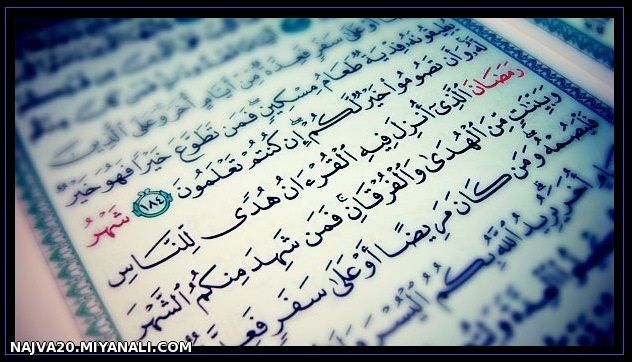 أَوْ عَلَىٰ سَفَرٍ فَعِدَّةٌ مِنْ أَيَّامٍ أُخَرَ وَعَلَى الَّذِينَ
يُطِيقُونَهُ فِدْيَةٌ طَعَامُ مِسْكِينٍ فَمَنْ تَطَوَّعَ خَيْرًا فَهُوَ خَيْرٌ
لَهُ وَأَنْ تَصُومُوا خَيْرٌ لَكُمْ إِنْ كُنْتُمْ تَعْلَمُونَ ١٨٤ شَهْرُ
رَمَضَانَ الَّذِىٓ أُنْزِلَ فِيهِ الْقُرْءَانُ هُدًى لِلنَّاسِ
وَبَيِّنَٰتٍ مِنَ الْهُدَىٰ وَالْفُرْقَانِ فَمَنْ شَهِدَ مِنْكُمُ الشَّهْرَ
فَلْيَصُمْهُ وَمَنْ كَانَ مَرِيضًا أَوْ عَلَىٰ سَفَرٍ فَعِدَّةٌ
أُخَرَ يُرِيدُ اللَّهُ بِكُمُ الْيُسْرَ
الْعِدَّةَ
NAJVA20.MIYANALI.COM